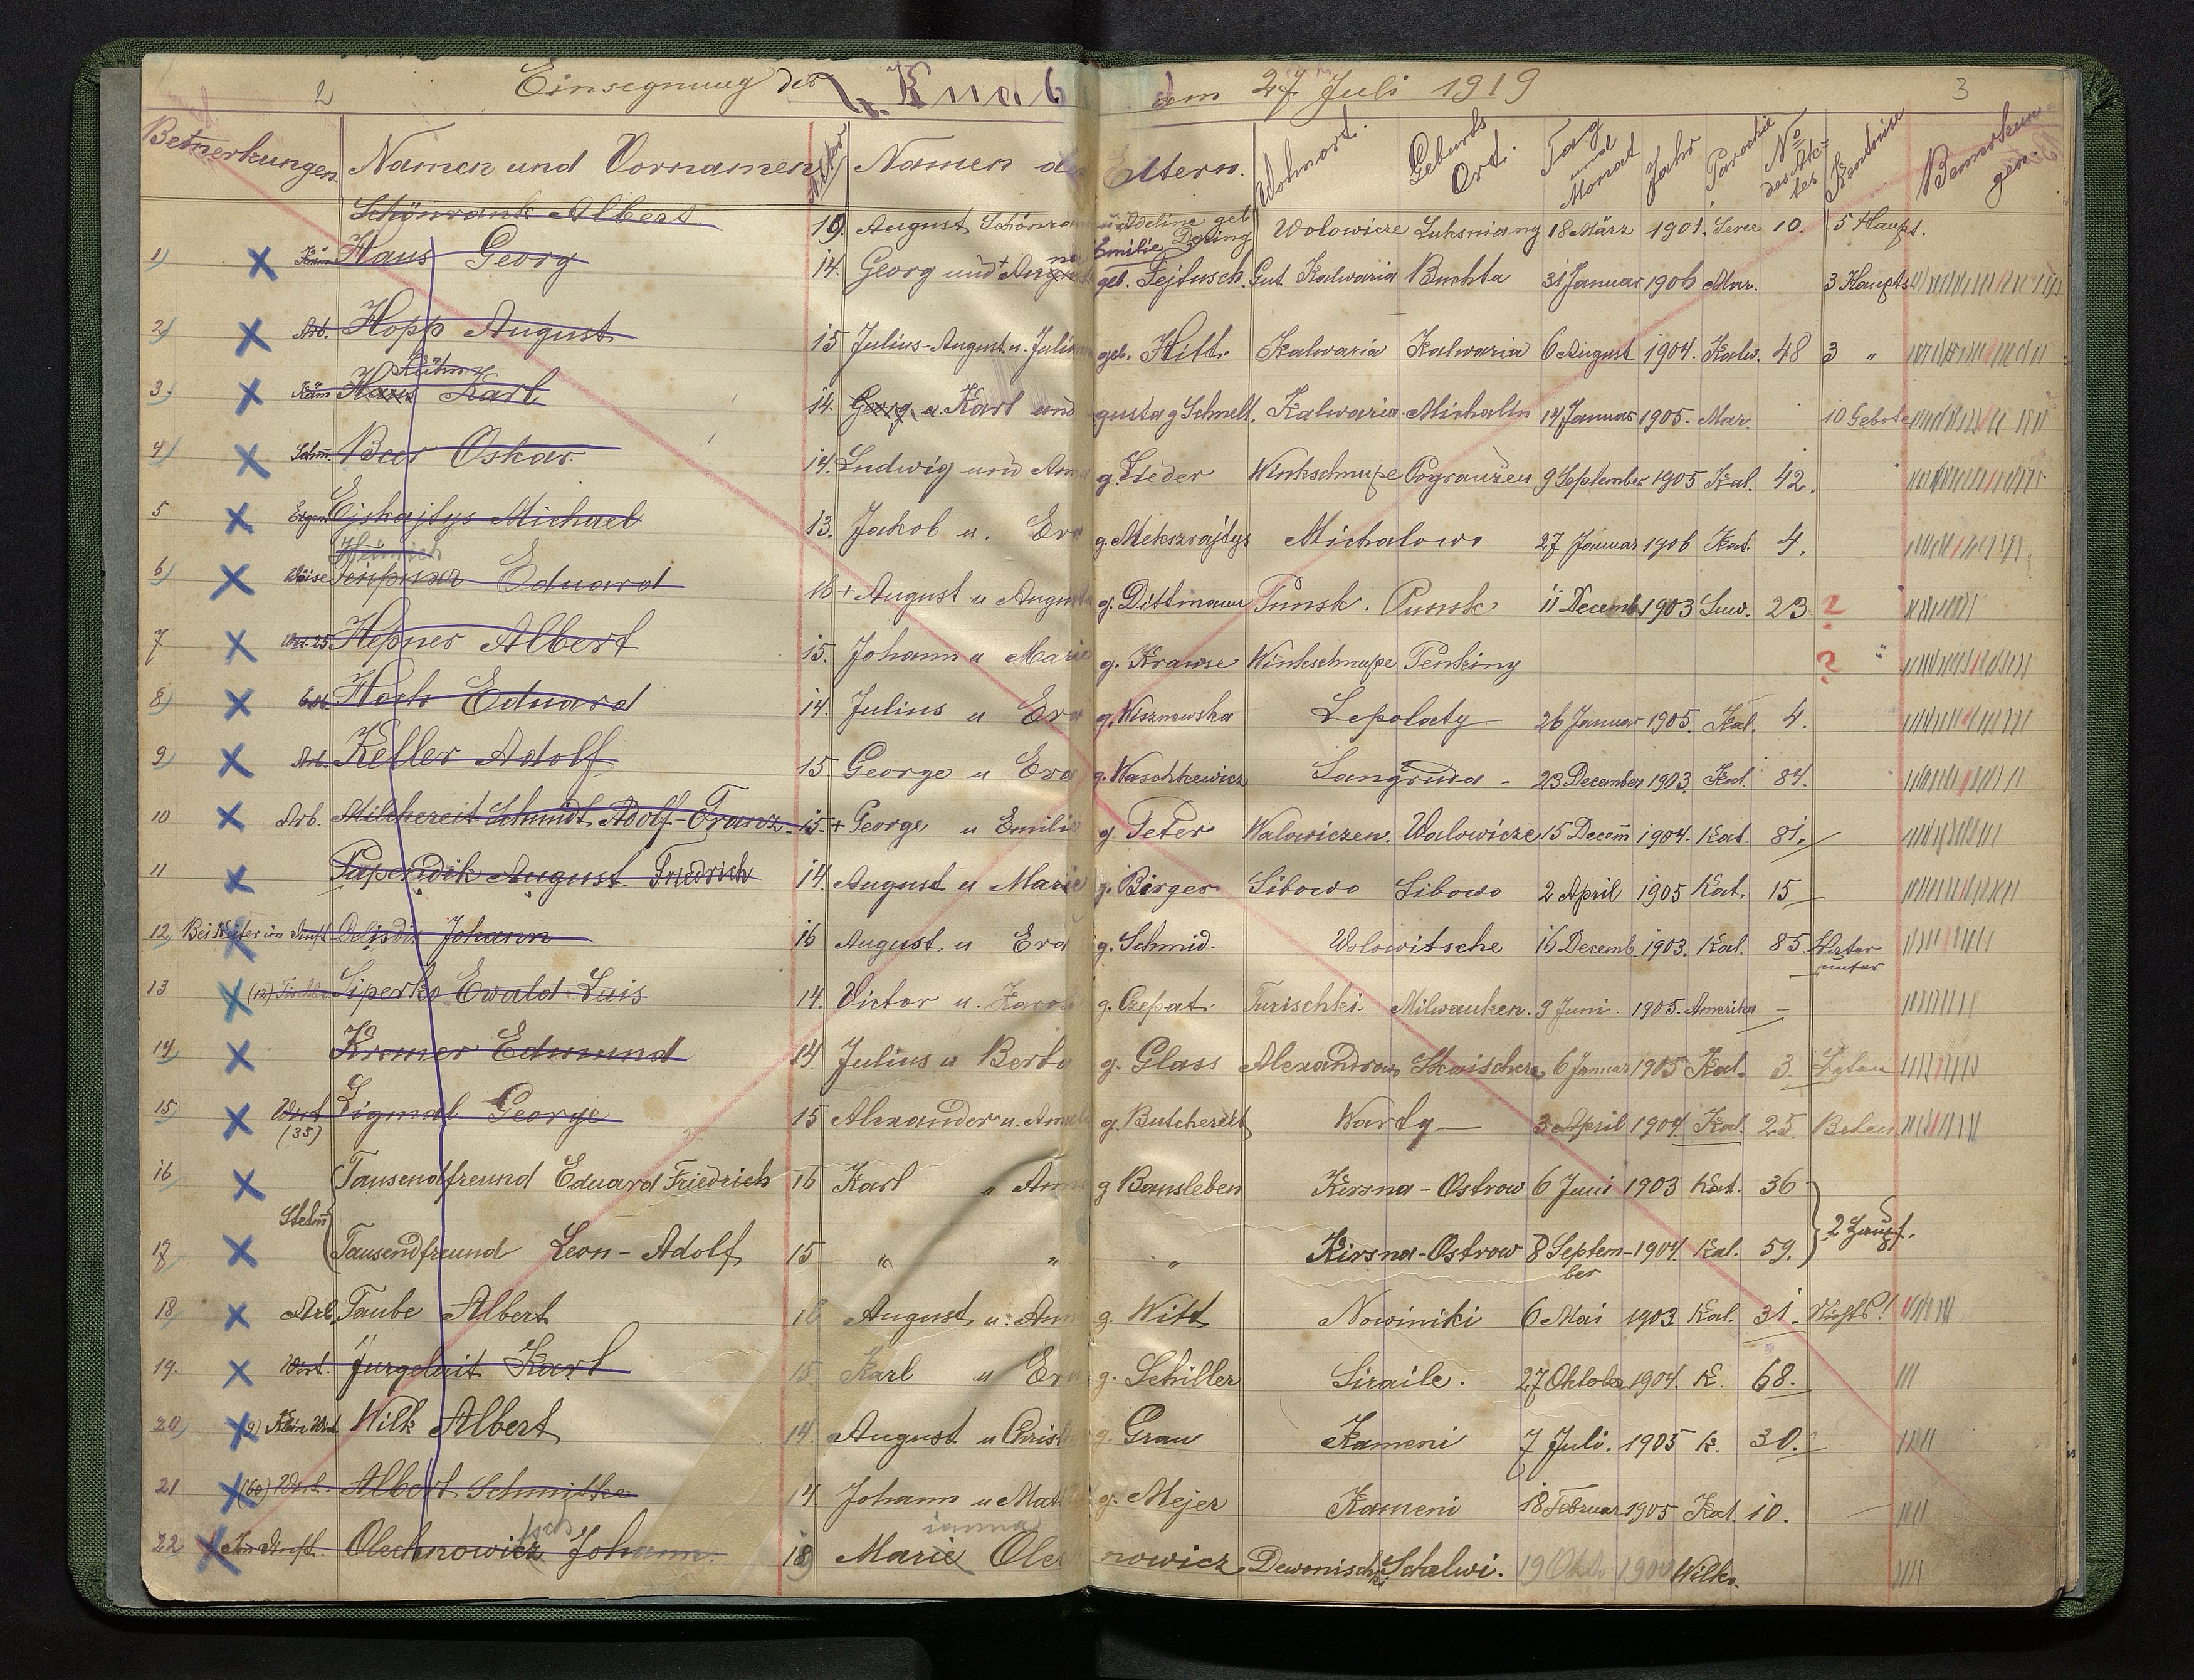 2 Einsegnung der Knab am 27 Juli 1919 3
Bemerkungen Namen und Vornamen Alter Namen d Eltern. Wohnort. Geburts Ort. Tag und Monat Jahr Parochie No des Aktes Kentnise Bemerkungen.
Schönrank Albert 19. August Schönran u Adeline geb Dering Wolowicze Luksniany 18 März 1901. Seree 10. 5 Haupt.
Emilie
1) Haus Georg 14. Georg und geb. Fejtusch. Gut. Kalwaria Buchta 31 Januar 1906 Mar. 3 Haupts
2) Arb. Hopp August 15 Julius-August u. Juli geb. Hitt. Kalwaria Kalwaria 6 August 1904. Kalw. 48 3 "
Kühn
3) Haus Karl 14. Georg u. Karl und gusta g Schmelt. Kalwaria. Michalin 14 Januar 1905. Mar. 10 Gebote
4) Schm. Beer Oskar. 14. Ludwig und Ama g. Lieder Winkschnupe Pograuzen 9 September 1905 Kal. 42.
5 Ejskajtys Michael 13. Jakob u. Eva g. Mekszrajtys Michalowo 27 Januar 1906 Kal. 4.
Heinrich
6) Waise Eduard 16 + August u August g. Dittmann Punsk. Punsk 11 Decemb. 1903 Suw. 23 ?
7 Hepner Albert 15. Johann u Marie g. Krause Winkschnupe Penkiny ? "
8) Hoch Eduard 14. Julius u Eva g. Wiszniewska Lepolaty 26 Januar 1905. Kal. 4.
9) Arb. Keller Adolf 15. George u Eva g. Waschkewicz Sangruda - 23 December 1903. Kal. 84.
10 Arb. Milchereit Schmidt Adolf-Franz. 15. + George u Emilie g. Peter Walowiczen. Walowicze 15 Decem 1904. Kal. 81.
11 Papendik August. Friedrich 14. August u Marie g. Birger Libowo Libowo 2 April 1905 Kal. 15
12) Johann 16 August u Eva g. Schmid. Wolowitsche 16 Decemb. 1903. Kal. 85.
13 (12) Liperko Ewald Luis 14. Victor u. Karol g. Czepat. Turischki. Milwauken. 9 Juni. 1905. Amerika -
14) Kremer Edmund 14. Julius u Berta g. Glass Alexandrow Skaischere 6 Januar 1905 Kal. 3. Beten
15) Wirt (35) Sigmal George 15 Alexander u. Ama g. Butchereit Warty - 3 April 1904 Kal. 25. Beten
16 Tausendfreund Eduard Friedrich 16 Karl " Ann g Bansleben Kirsna-Ostrow 6 Juni 1903 Kal. 36
Stelm
17 Tausendfreund Leon-Adolf 15 " " " Kirsna-Ostrow 8 September 1904. Kal. 59. 2 Haupt.
18) Arb. Taube Albert 16 August u. Ann g. Witt Nowiniki 6 Mai 1903 Kal. 31. Nichts!
19. Wirt. Jurgeleit Karl 15. Karl u Eva g. Schiller Siraile. 27 Oktober 1904. K. 68.
20) Wilk Albert 14. August u Christ g. Grau Kameni 7 Juli. 1905 K. 30.
21 (60) Wirt. Albert Schmitke 14. Johann u Mat g. Mejer Kameni 18 Februar 1905 Kal. 10.
tsch ianna
22 Olechnowicz Johann. 18) Marie Ole nowicz. Dewonischki Schelwi. 19 Okto 1900 Wilko.